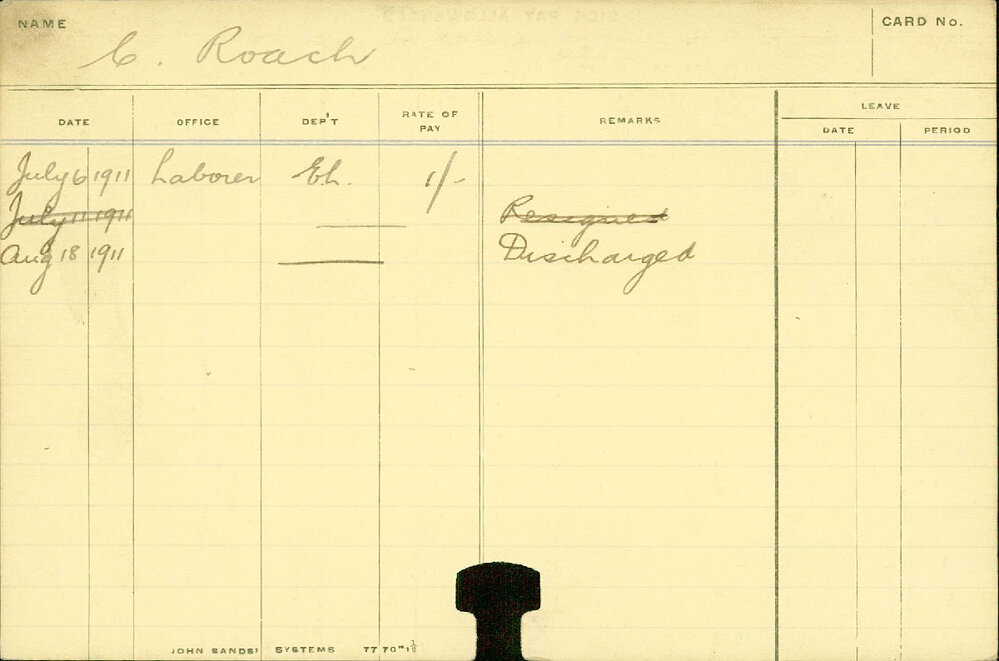 NAME C. Roach CARD No.
LEAVE
DATE OFFICE DEP'T RATE OF PAY REMARKS DATE PERIOD
July 6 1911 Laborer Eh. 1/-
July 11 1911 Resigned
Aug 18 1911 Discharged
JOHN SANDS' SYSTEMS